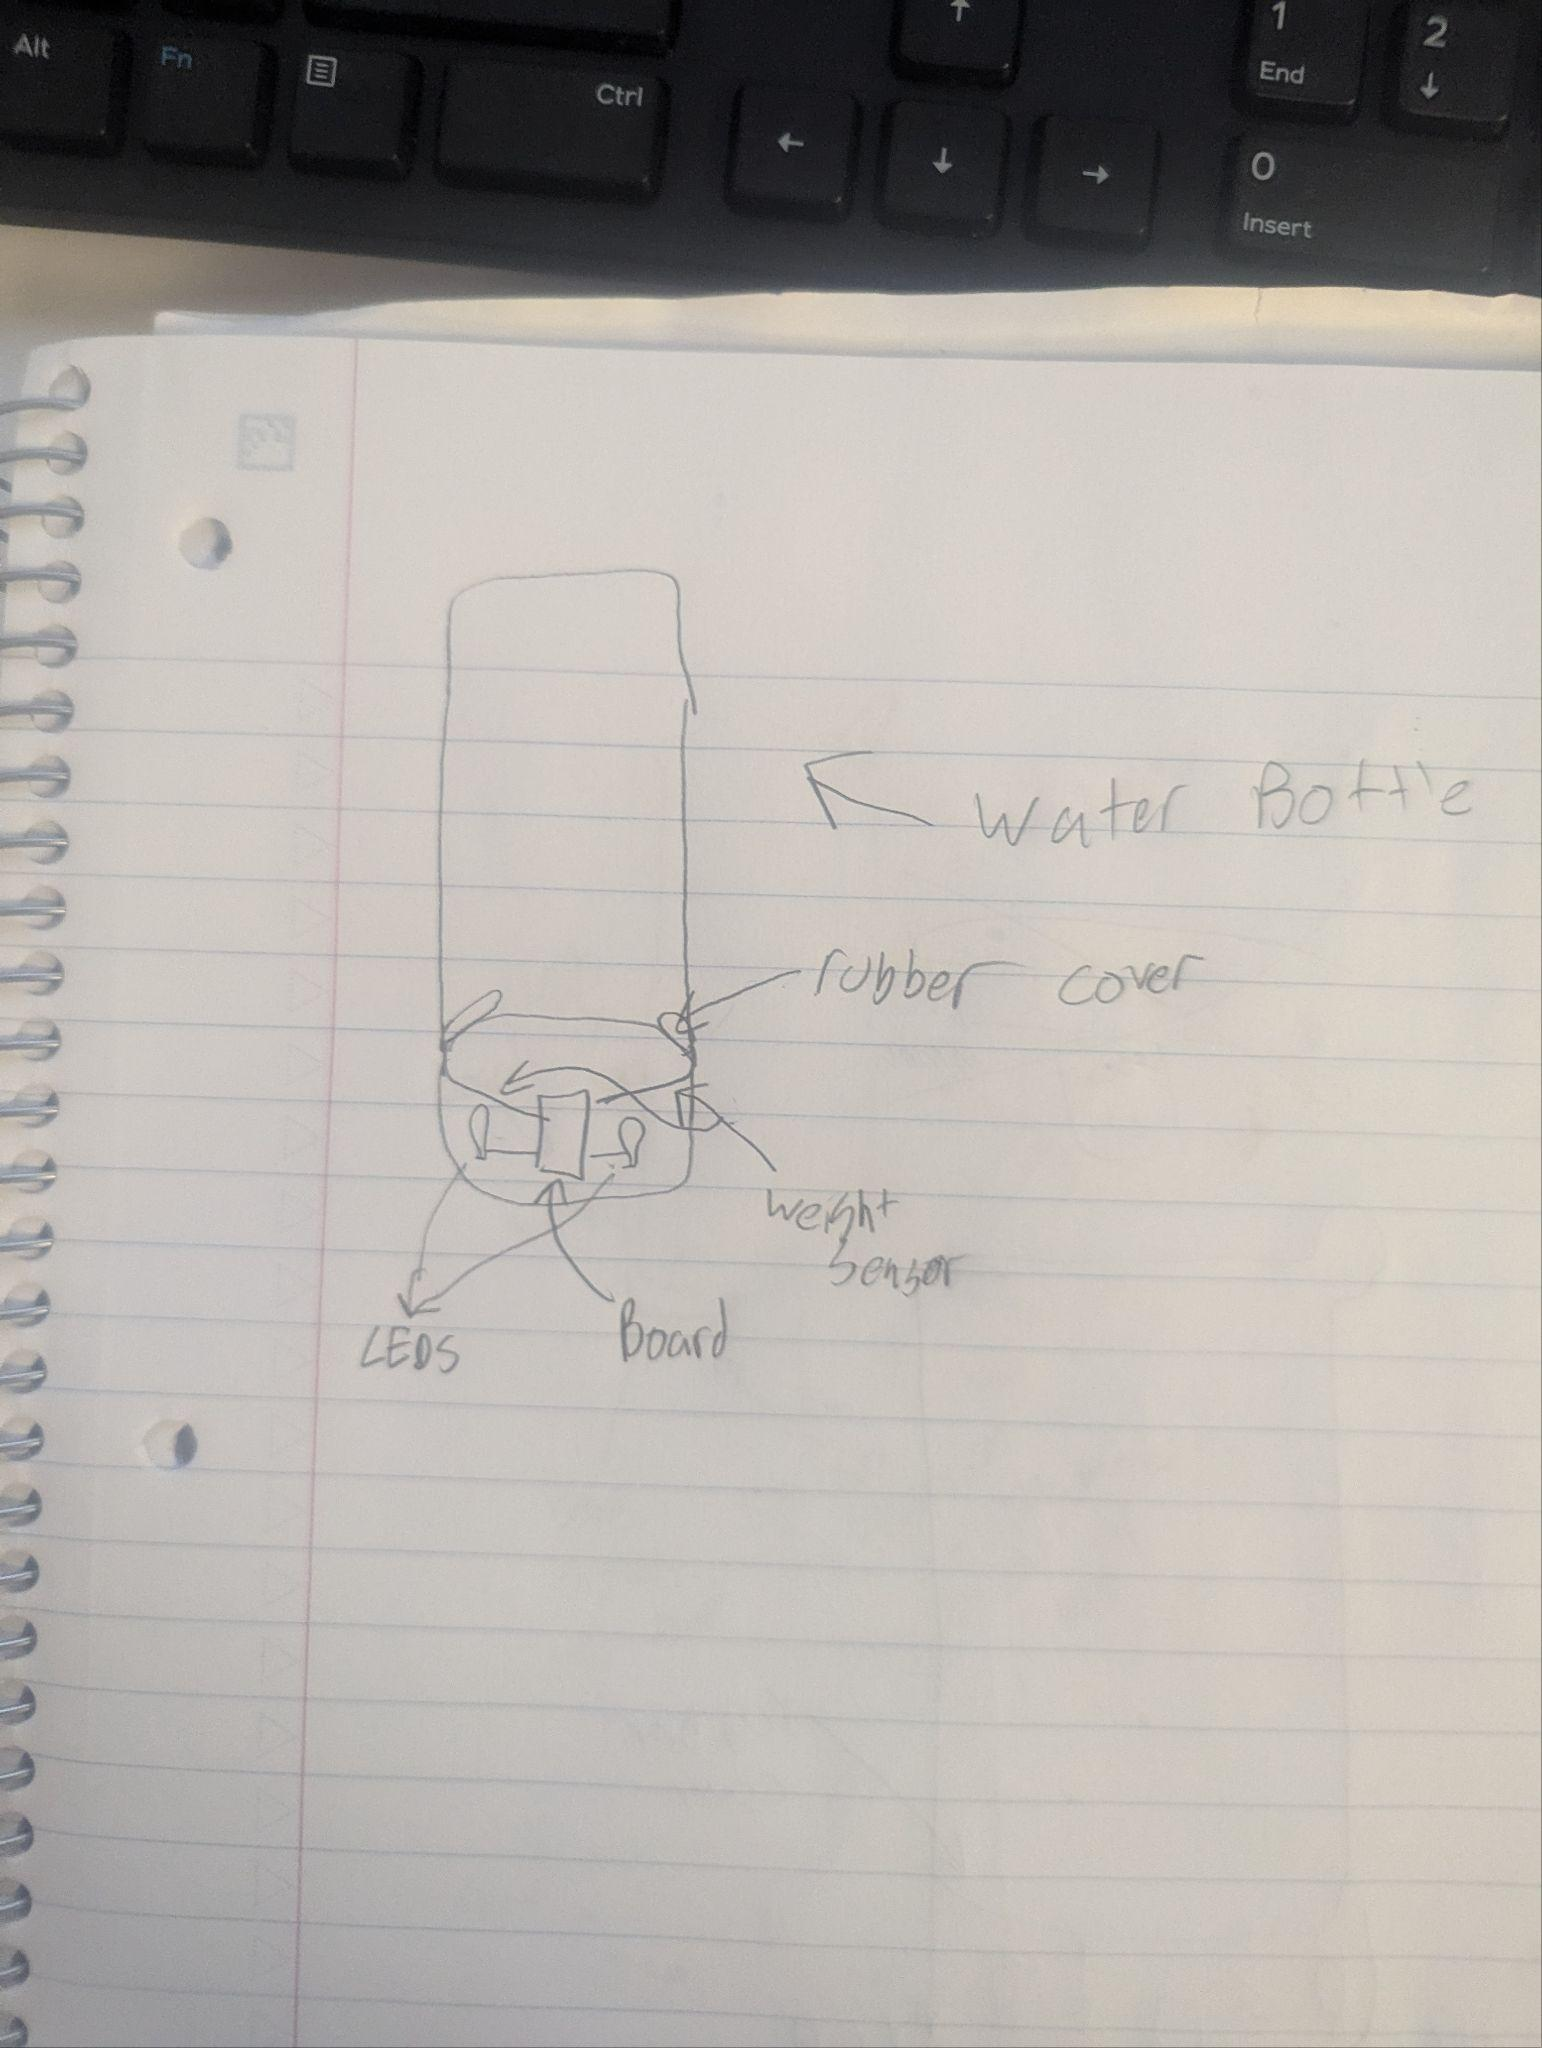 Alt
Fn
Ctrl
↑
←
↓
→
1
End
2
↓
0
Insert
Water Bottle
rubber cover
Weight
Sensor
LEDS
Board